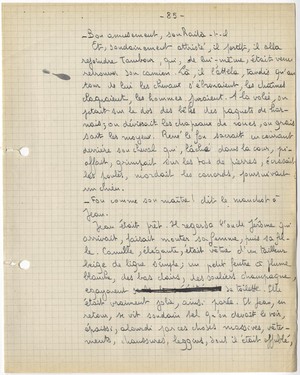 - 85 -
- Bon amusement, souhaita-t-il
Et, soudainement attristé, il sortit, il alla
rejoindre Tambour, qui, de lui-même, était venu
retrouver son camion. Là, il l'attela, tandis qu'au
tour de lui les chevaux s'ébrouaient, les chaînes
claquaient, les hommes juraient. A la volée, on
jetait sur le dos des bêtes des paquets de har-
nais, on dévissait les chapeaux de roues, on grais
sait les moyeux. René le fou sautait en courant
derrière son cheval qui, lâché dans la cour, pi-
affait, grimpait sur les tas de pierres, écrasait
les , mordait les
un chien.
- Fou comme son maître! dit le manchot à
Jean.
Jean était prêt. Il regarda l'oncle Jérôme qui
arrivait, faisant monter sa femme, puis sa fil-
le. Camille, élégante, était vêtue d'un tailleur
beige de ligne simple; un petit feutre à plume
blanche, des bas clairs, des souliers champagne
égayaient de toilette. Elle
était vraiment jolie, ainsi parée. Et Jean, en
retour, se vit soudain tel qu'on devait le voir,
épaissi, alourdi par ces choses massives, vête-
ments, chaussures, leggins, dont il était affublé,